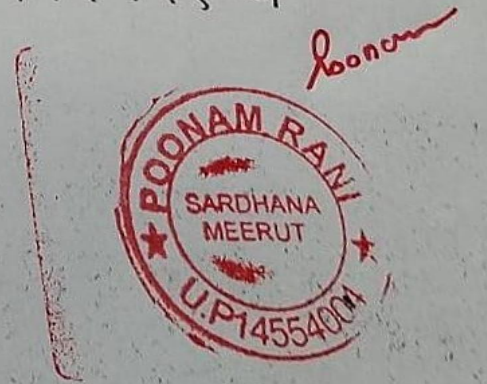 Poonam
POONAM RANI
SARDHANA
MEERUT
U.P14554004